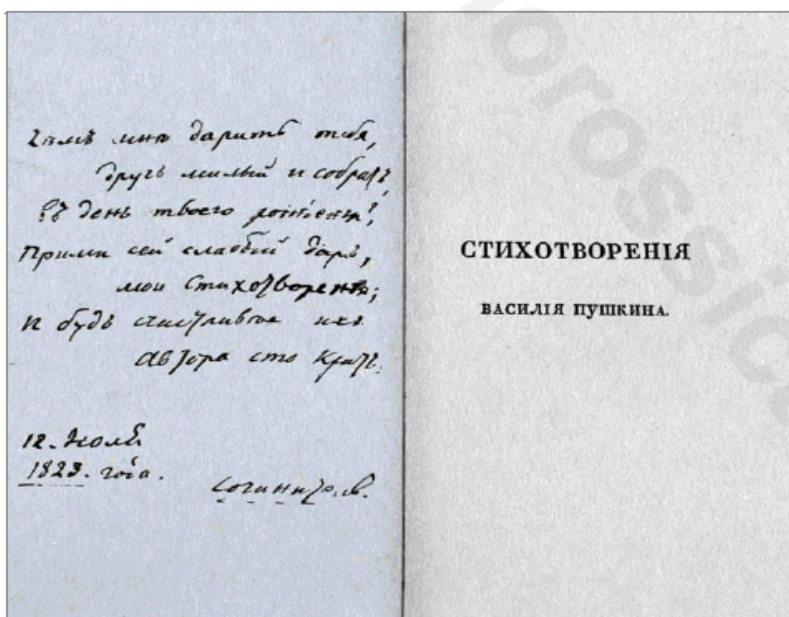 Чѣмъ мнѣ дарить тебя,
другъ милый и собратъ,
Въ день твоего рожденья?
Прими сей слабый даръ,
мои Стихотворенья;
И будь счастливѣе ихъ
автора сто кратъ.
12. Июля
1823. года.
Сочинитель.
СТИХОТВОРЕНІЯ
ВАСИЛІЯ ПУШКИНА.